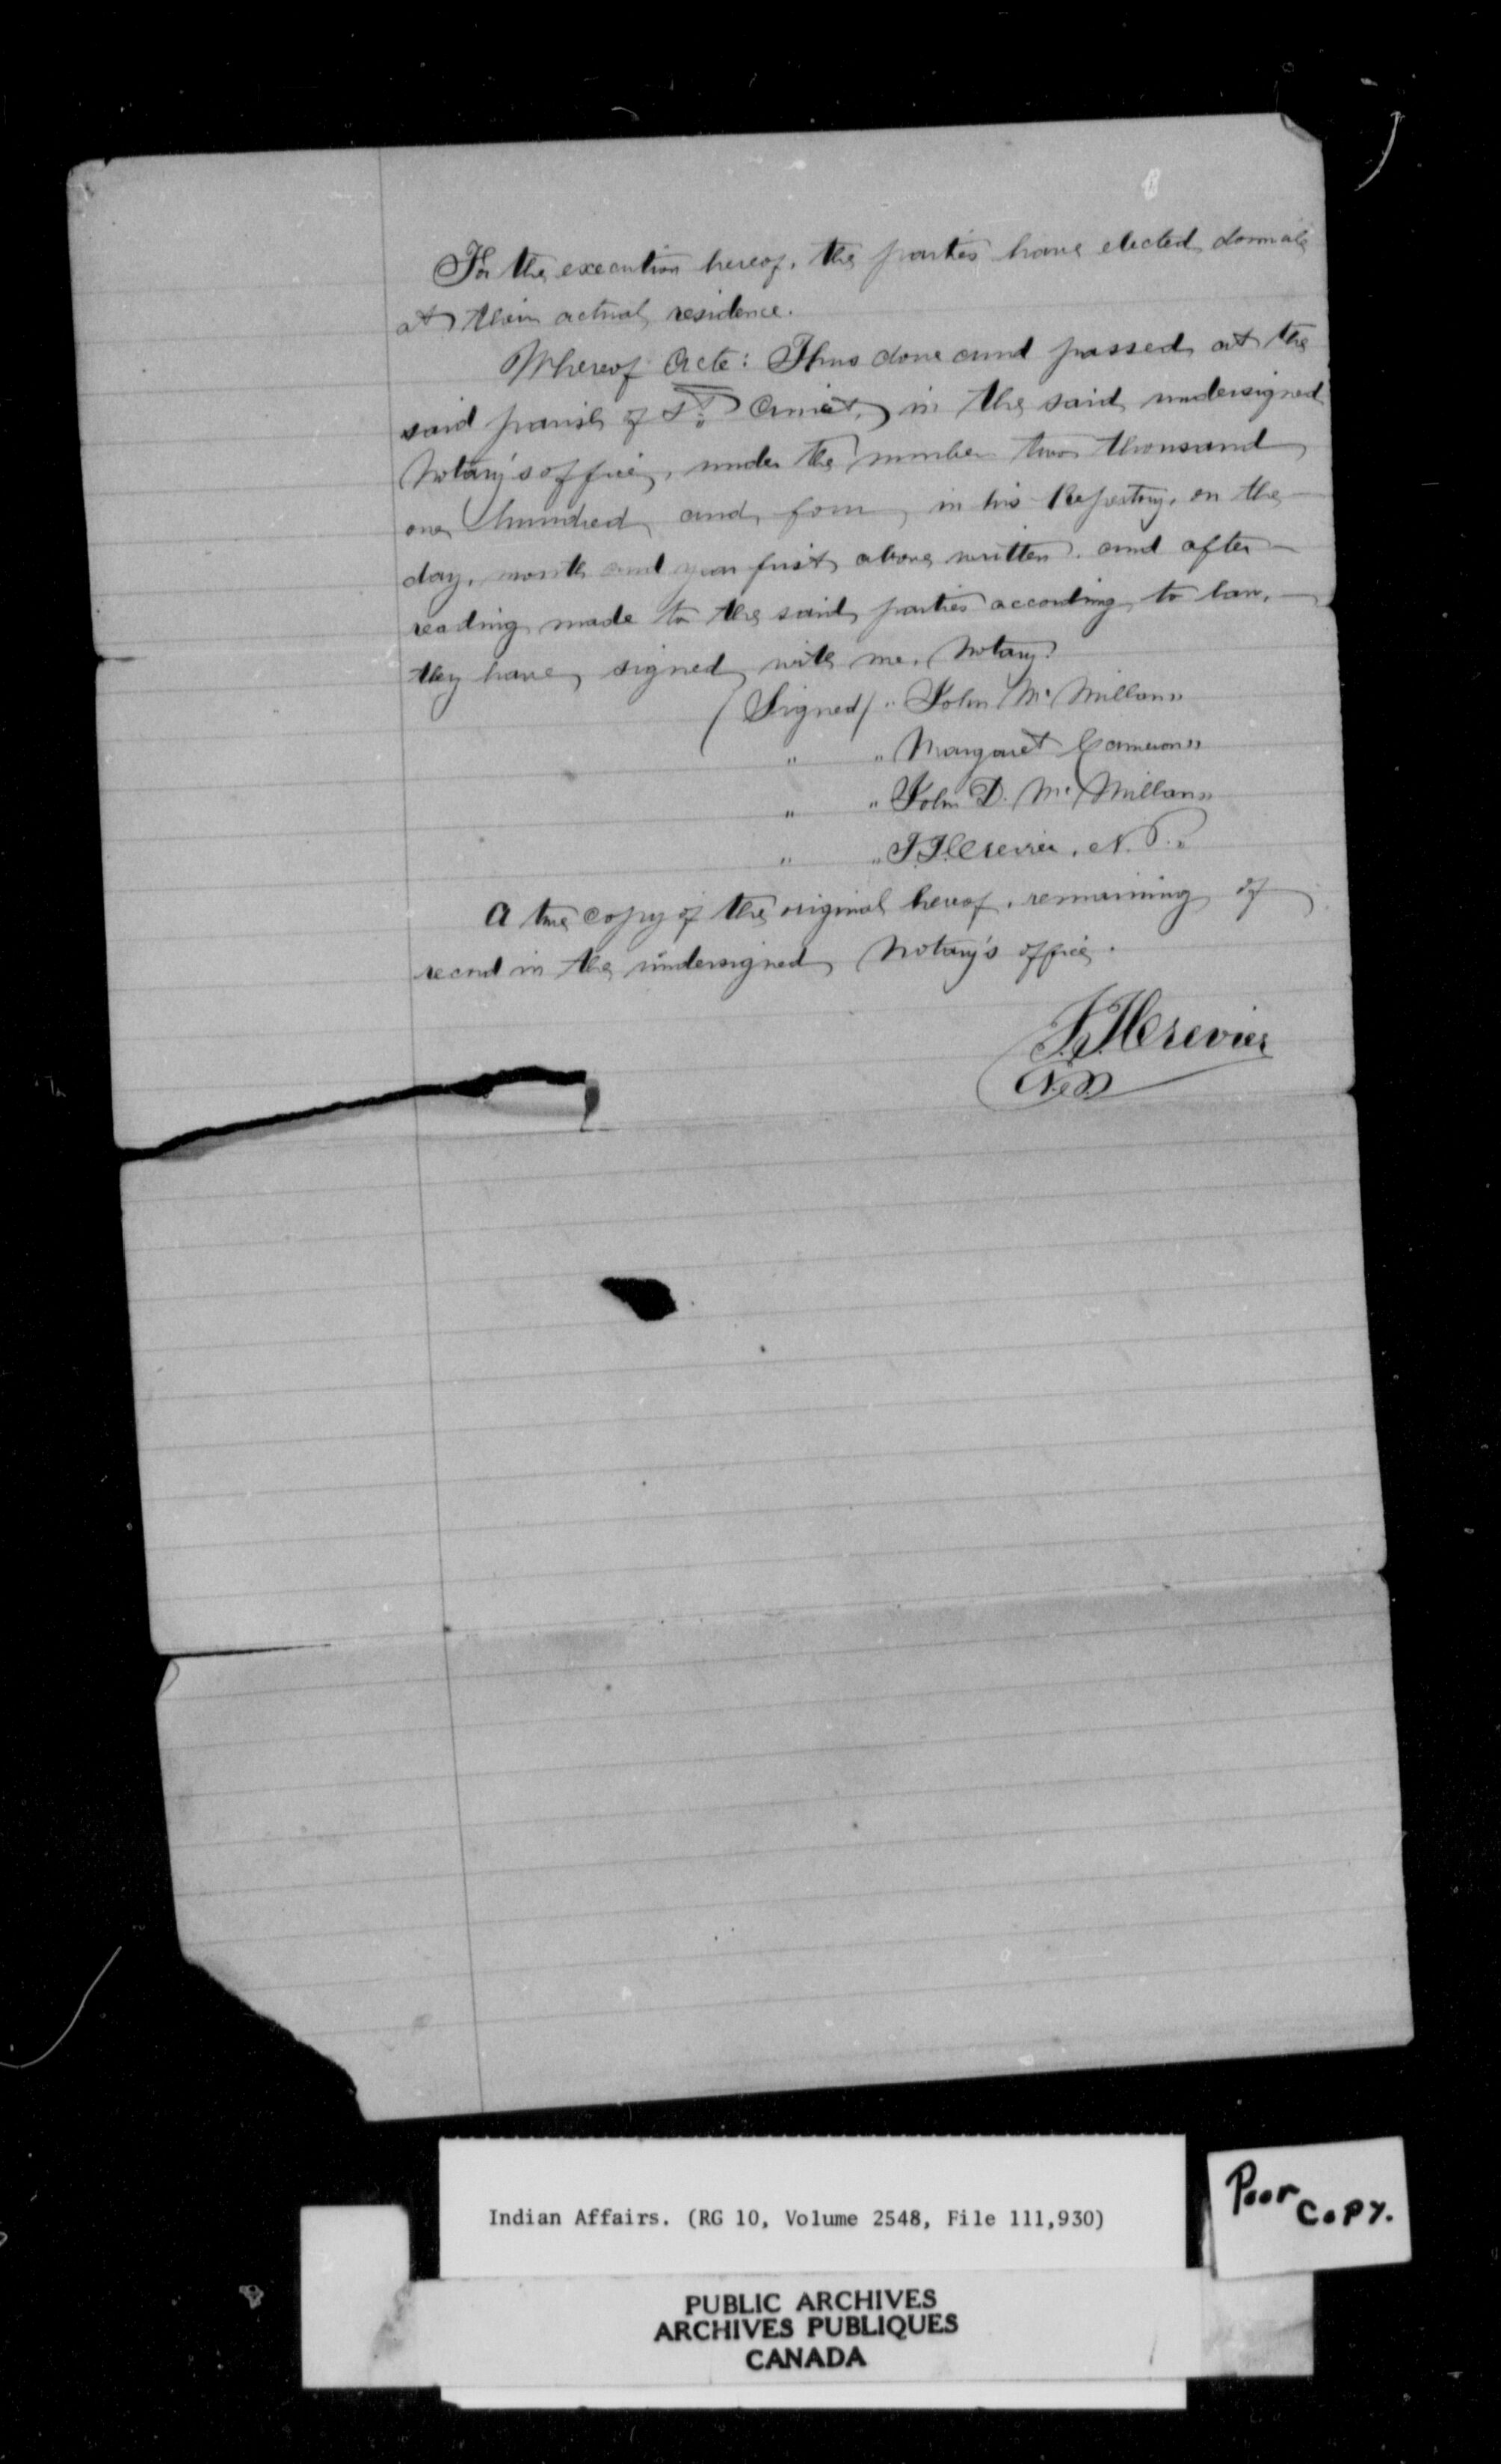 For the execution hereof, the parties have elected domicile
at their actual residence.
Whereof Acte: Thus done and passed at the
said parish of St. Anicet, in the said undersigned
Notary's office, under the number two thousand
one hundred and four, in his Repertory, on the
day, month and year first above written. and after
reading made to the said parties according to law,
they have signed with me, Notary.
(Signed) "John Mc Millan"
" "Margaret Cameron"
" "John D. Mc Millan"
" "I. I. Crevier, N. P."
A true copy of the original hereof, remaining of
record in the undersigned Notary's office.
I. I. Crevier
N.P.
Indian Affairs. (RG 10, Volume 2548, File 111,930)
Poor
Copy.
PUBLIC ARCHIVES
ARCHIVES PUBLIQUES
CANADA